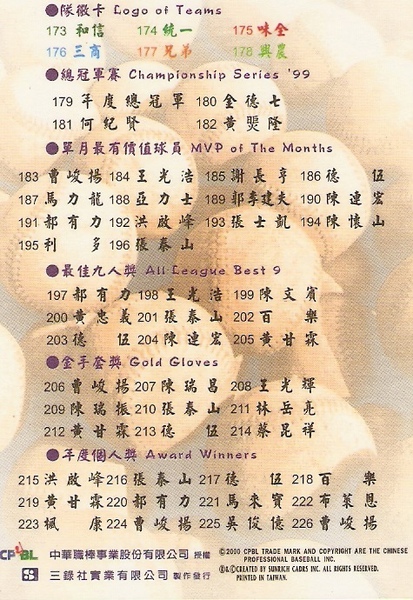 ●隊徽卡 Logo of Teams
173 和信 174 統一 175 味全
176 三商 177 兄弟 178 興農
●總冠軍賽 Championship Series '99
179 年度總冠軍 180 金德七
181 何紀賢 182 黃煚隆
●單月最有價值球員 MVP of The Months
183 曹峻揚 184 王光浩 185 謝長亨 186 德伍
187 馬力龍 188 亞力士 189 郭李建夫 190 陳連宏
191 郝有力 192 洪啟峰 193 張士凱 194 陳懷山
195 利多 196 張泰山
●最佳九人獎 All League Best 9
197 郝有力 198 王光浩 199 陳文賓
200 黃忠義 201 張泰山 202 百樂
203 德伍 204 陳連宏 205 黃甘霖
●金手套獎 Gold Gloves
206 曹峻揚 207 陳瑞昌 208 王光輝
209 陳瑞振 210 張泰山 211 林岳亮
212 黃甘霖 213 德伍 214 蔡昆祥
●年度個人獎 Award Winners
215 洪啟峰 216 張泰山 217 德伍 218 百樂
219 黃甘霖 220 郝有力 221 馬來寶 222 布萊恩
223 楓康 224 曹峻揚 225 吳俊億 226 曹峻揚
CPBL 中華職棒事業股份有限公司 授權
三錄社實業有限公司 製作發行
©2000 CPBL TRADE MARK AND COPYRIGHT ARE THE CHINESE
PROFESSIONAL BASEBALL INC.
®&©CREATED BY SUNRICH CARDS INC. ALL RIGHTS RESERVED.
PRINTED IN TAIWAN.